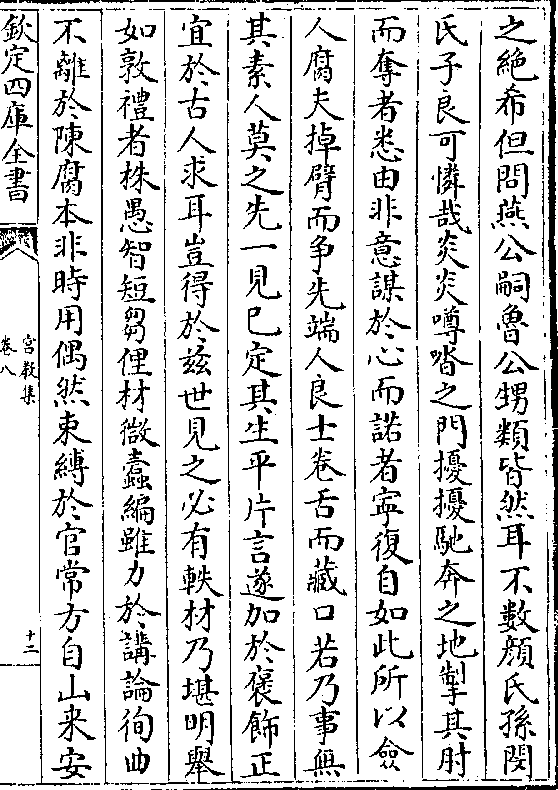 之絶希但問燕公嗣魯公甥類皆然耳不數顔氏孫閔
氏子良可憐哉炎炎噂沓之門擾擾馳奔之地掣其肘
而奪者悉由非意謀於心而諾者寧復自如此所以僉
人腐夫掉臂而争先端人良士卷舌而藏口若乃事無
其素人莫之先一見已定其生平片言遂加於褒飾正
宜於古人求耳豈得於兹世見之必有軼材乃堪明舉
如敦禮者株愚智短芻俚材微蠹編雖力於講論徇曲
不離於陳腐本非時用偶然束縛於官常方自山来安
欽定四庫全書
宫教集
卷八
十二